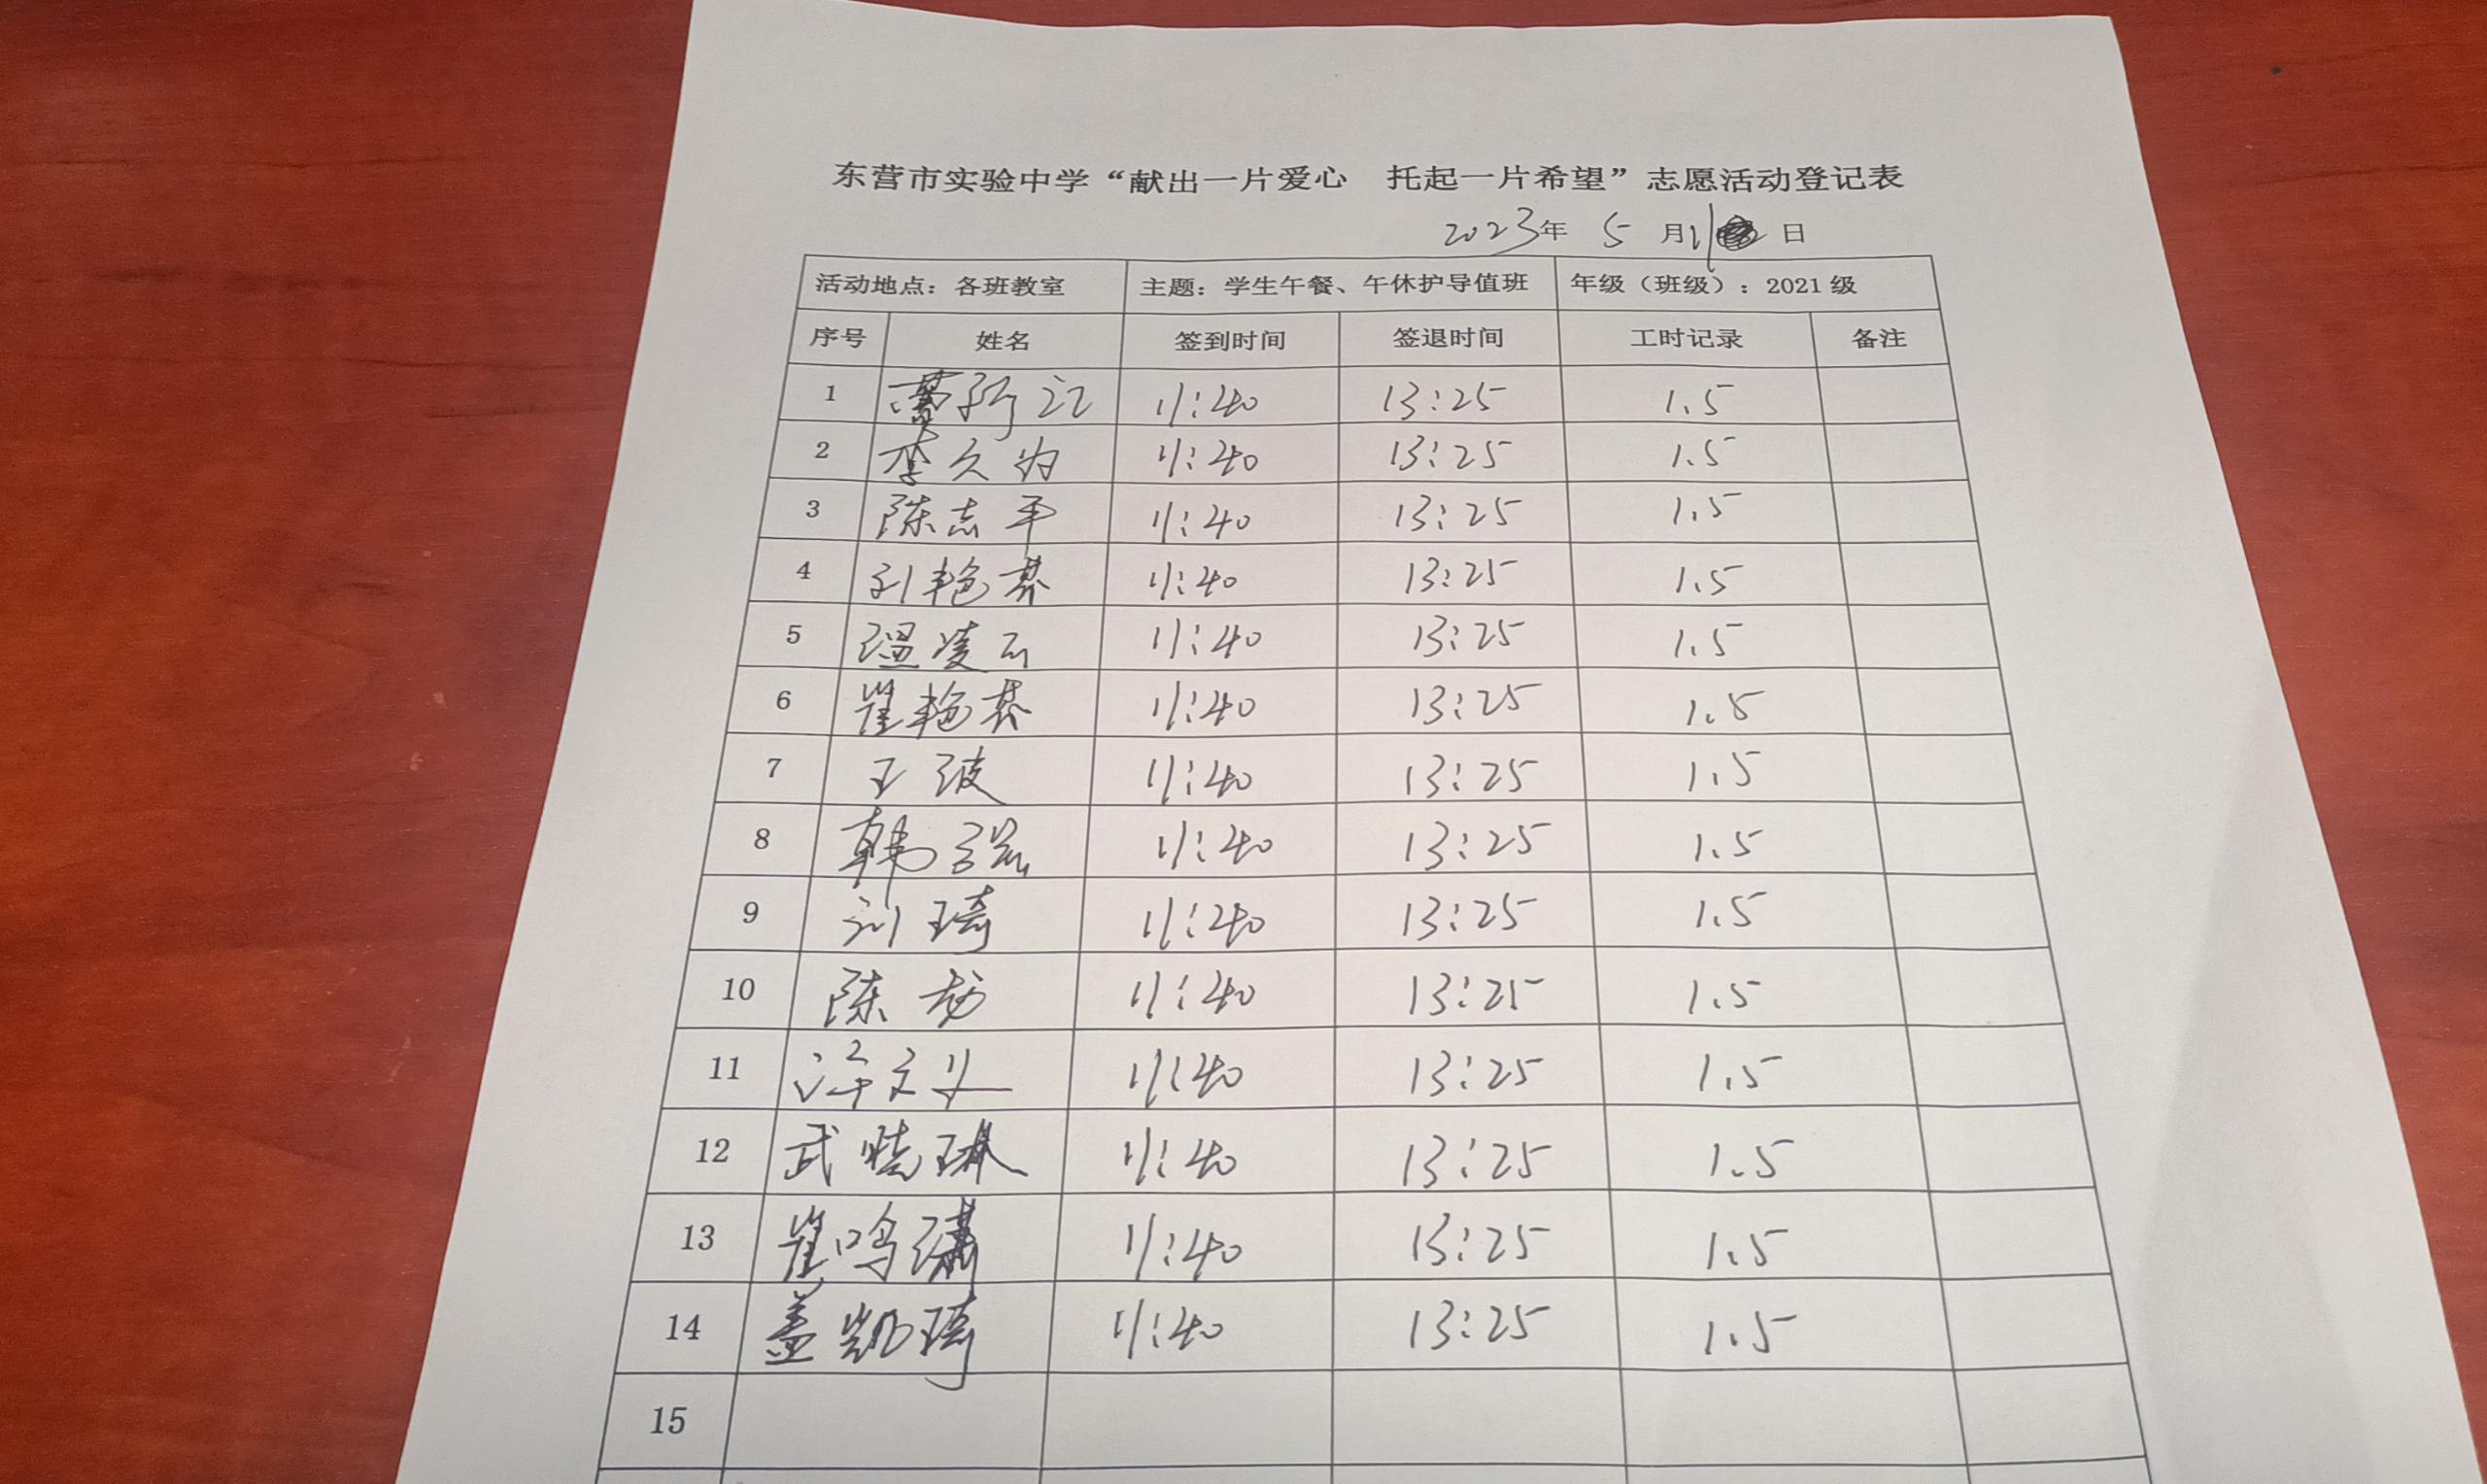 东营市实验中学“献出一片爱心 托起一片希望”志愿活动登记表
2023年 5 月11日
活动地点：各班教室 主题：学生午餐、午休护导值班 年级（班级）：2021 级
序号 姓名 签到时间 签退时间 工时记录 备注
1 11:40 13:25 1.5
2 李久灼 11:40 13:25 1.5
3 陈志平 11:40 13:25 1.5
4 刘艳芬 11:40 13:25 1.5
5 温凌云 11:40 13:25 1.5
6 崔艳芬 11:40 13:25 1.5
7 王波 11:40 13:25 1.5
8 韩 11:40 13:25 1.5
9 刘琦 11:40 13:25 1.5
10 陈 11:40 13:25 1.5
11 文 11:40 13:25 1.5
12 武晓琳 11:40 13:25 1.5
13 崔鸣潇 11:40 13:25 1.5
14 盖凯琦 11:40 13:25 1.5
15